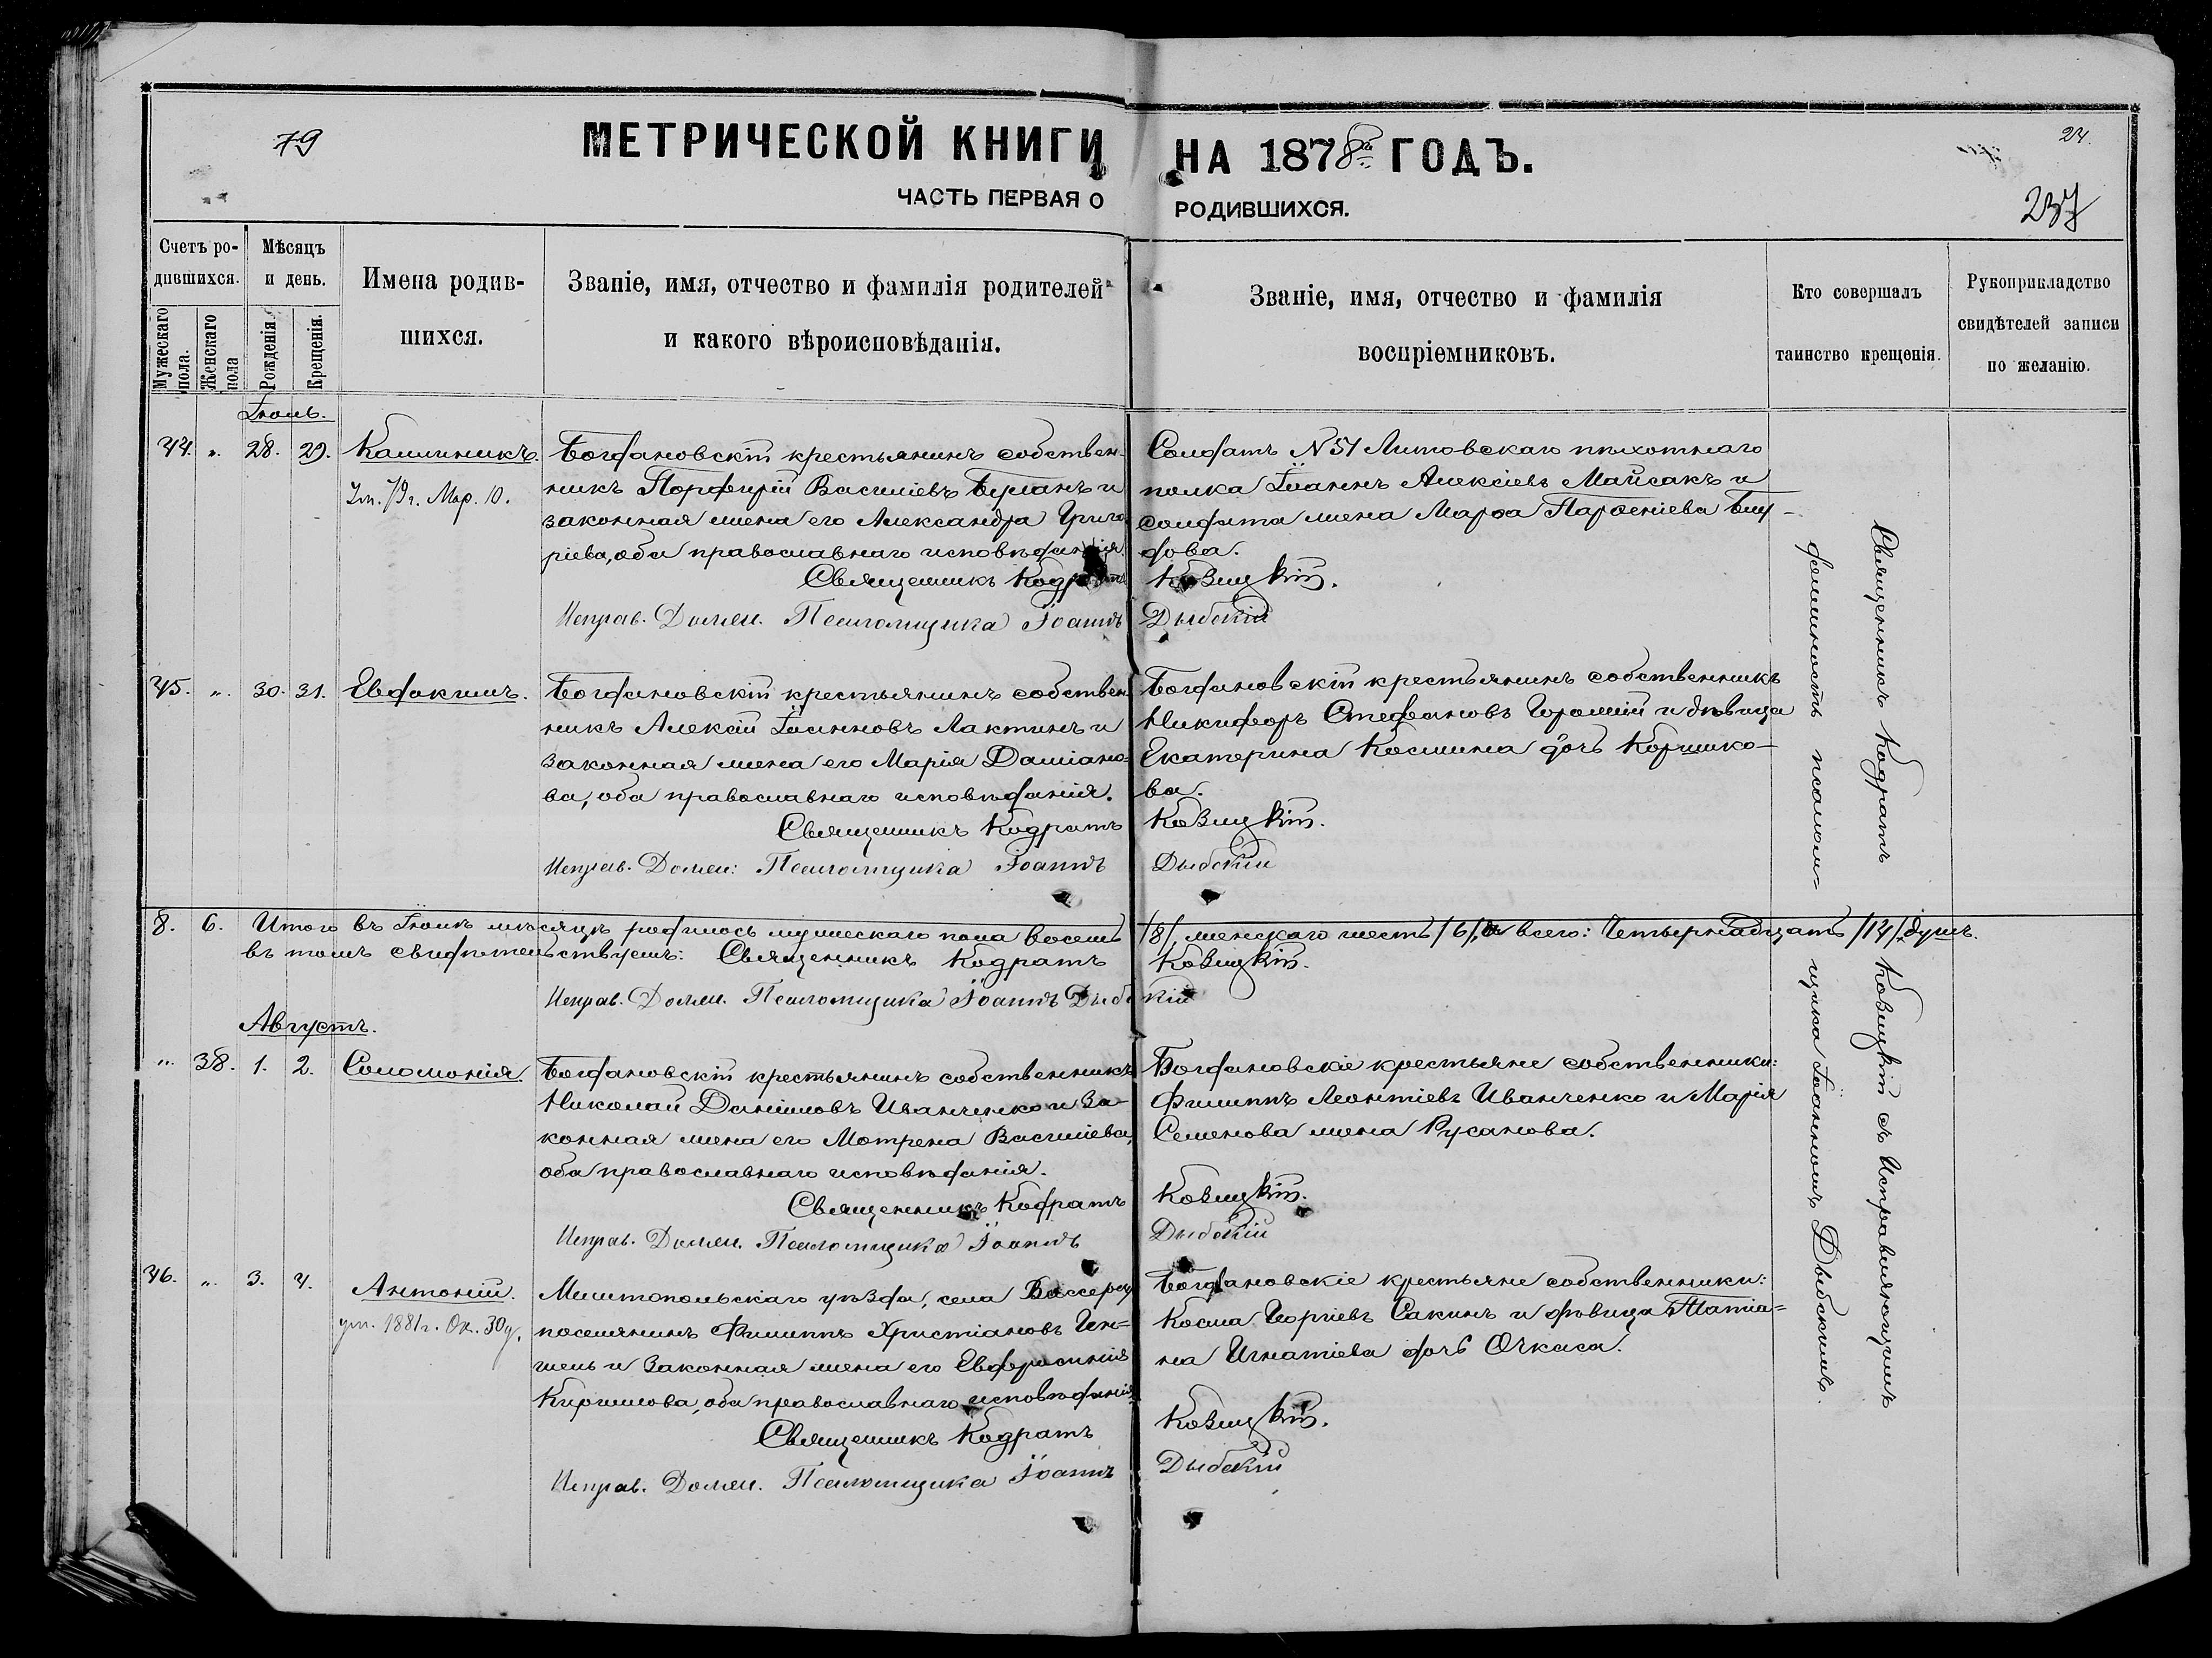 79
МЕТРИЧЕСКОЙ КНИГИ НА 1878й ГОДЪ.
ЧАСТЬ ПЕРВАЯ О РОДИВШИХСЯ.
24.
237
Счетъ ро-
дившихся.
Мужескаго пола.
Женскаго пола
Мѣсяцъ
и день.
Рожденія.
Крещенія.
Имена родив-
шихся.
Званіе, имя, отчество и фамилія родителей
и какого вѣроисповѣданія.
Званіе, имя, отчество и фамилія
воспріемниковъ.
Кто совершалъ
таинство крещенія.
Рукоприкладство
свидѣтелей записи
по желанію.
Іюль.
44. „ 28. 29. Каллиникъ.
Ум. 79 г. Мар. 10.
Богдановскій крестьянинъ собствен-
никъ Порфирій Василіевъ Бурланъ и
законная жена его Александра Григо
ріева, оба православнаго исповѣданія.
Священникъ Кодратъ
Исправ. Должн. Псаломщика Іоаннъ
Солдатъ N 51 Литовскаго пѣхотнаго
полка Іоаннъ Алексіевъ Майсакъ и
солдата жена Марѳа Парѳеніева
дова.
Ковицкій.
Дыбскій
45. „ 30. 31. Евдокимъ.
Богдановскій крестьянинъ собствен-
никъ Алексій Іоанновъ Лактинъ и
законная жена его Марія Даміано-
ва, оба православнаго исповѣданія.
Священникъ Кодратъ
Исправ. Должн: Псаломщика Іоаннъ
Богдановскій крестьянинъ собственникъ
Никифоръ Стефановъ и дѣвица
Екатерина Космина дочь Коршико-
ва.
Ковицкій.
Дыбскій
8. 6. Итого въ Іюлѣ мѣсяцѣ родилось мужескаго пола восемь /8/, женскаго шесть /6/, а всего: Четырнадцать /14/ душъ.
въ томъ свидѣтельствуемъ: Священникъ Кодратъ Ковицкій.
Исправ. Должн. Псаломщика Іоаннъ Дыбскій
Августъ.
„ 38. 1. 2. Соломонія.
Богдановскій крестьянинъ собственникъ
Николай Даніиловъ Иванченко и за-
конная жена его Мотрена Василіева,
оба православнаго исповѣданія.
Священникъ Кодратъ
Исправ. Должн. Псаломщика Іоаннъ
Богдановскіе крестьяне собственники:
Филиппъ Леонтіевъ Иванченко и Марія
Семенова жена Русанова.
Ковицкій.
Дыбскій
46. „ 3. 4. Антоній.
ум. 1881 г. Ок. 30 ч.
Мелитопольскаго уѣзда, села
поселянинъ Филиппъ Христіановъ Ген=
шель и законная жена его Евфросинія
Кириллова, оба православнаго исповѣданія.
Священникъ Кодратъ
Исправ. Должн. Псаломщика Іоаннъ
Богдановскіе крестьяне собственники:
Косма Георгіевъ Сакинъ и дѣвица Татіа=
на Игнатіева дочь Очкаса.
Ковицкій.
Дыбскій
Священникъ Кодратъ Ковицкій съ Исправляющимъ
должность псалом=щика Іоанномъ Дыбскимъ.